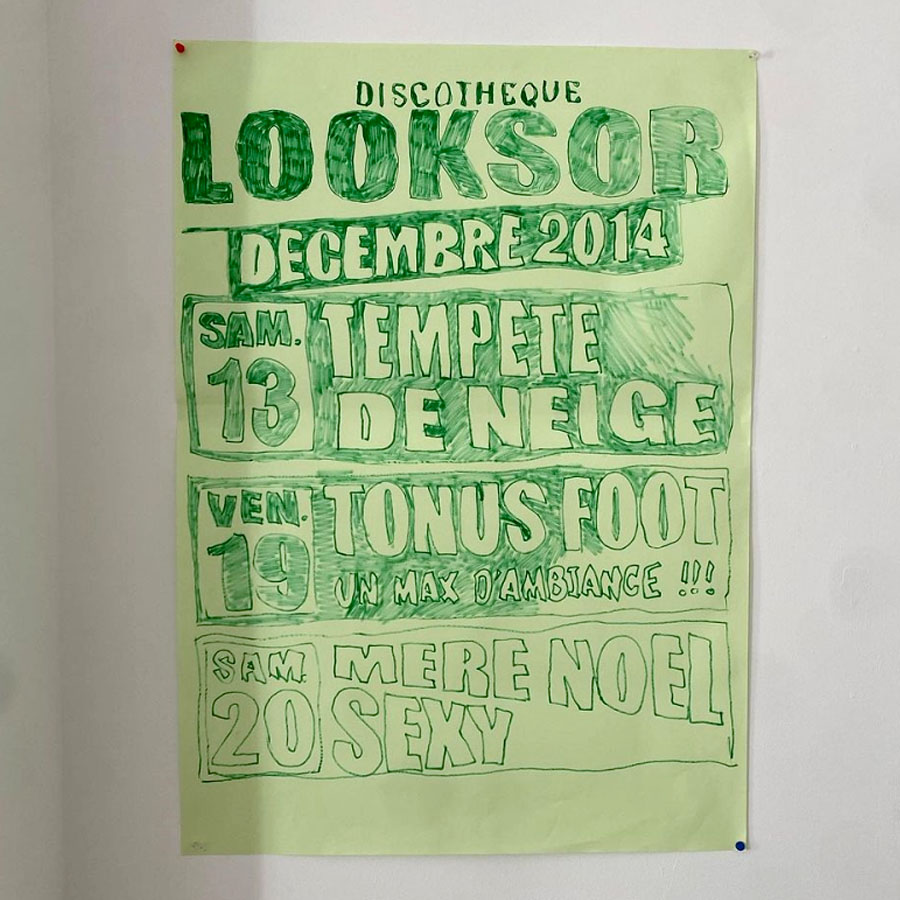 DISCOTHEQUE
LOOKSOR
DECEMBRE 2014
SAM.
13
TEMPETE
DE NEIGE
VEN.
19
TONUS FOOT
UN MAX D'AMBIANCE !!!
SAM.
20
MERE NOEL
SEXY